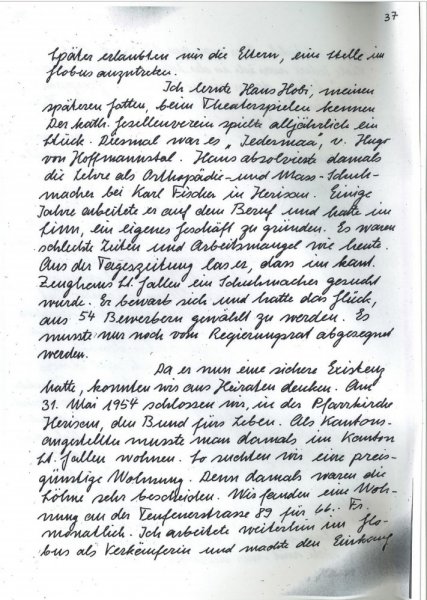 37
Später erlaubten mir die Eltern, eine Stelle im
Globus anzutreten.
Ich lernte Hans Hobi, meinen
späteren Gatten, beim Theaterspielen kennen
Der kath. Gesellenverein spielte alljährlich ein
Stück. Diesmal war es „Jedermann", v. Hugo
von Hoffmannstal. Hans absolvierte damals
die Lehre als Orthopädie- und Mass-Schuh-
macher bei Karl Fischer in Herisau. Einige
Jahre arbeitete er auf dem Beruf und hatte im
Sinn, ein eigenes Geschäft zu gründen. Es waren
schlechte Zeiten und Arbeitsmangel wie heute.
Aus der Tageszeitung las er, dass im kant.
Zeughaus St. Gallen ein Schuhmacher gesucht
wurde. Er bewarb sich und hatte das Glück,
aus 54 Bewerbern gewählt zu werden. Es
musste nur noch vom Regierungsrat abgesegnet
werden.
Da er nun eine sichere Existenz
hatte, konnten wir ans Heiraten denken. Am
31. Mai 1954 schlossen wir, in der Pfarrkirche
Herisau, den Bund fürs Leben. Als Kantons-
angestellter musste man damals im Kanton
St. Gallen wohnen. So suchten wir eine preis-
günstige Wohnung. Denn damals waren die
Löhne sehr bescheiden. Wir fanden eine Woh-
nung an der Teufenerstrasse 89 für 66.- Fr.
monatlich. Ich arbeitete weiterhin im Glo-
bus als Verkäuferin und machte den Einkauf